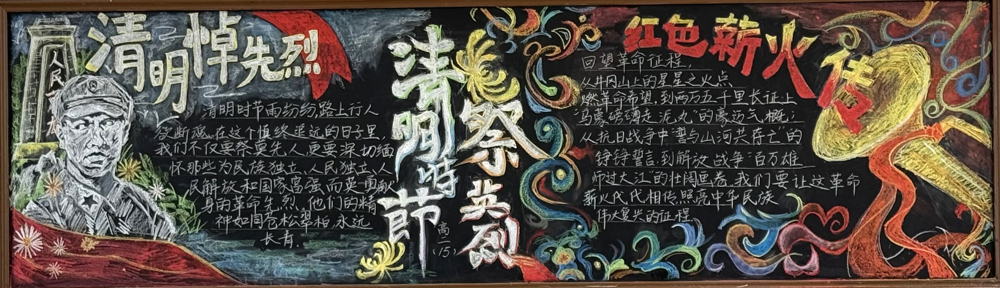 清明悼先烈
人民英
清明时节雨纷纷,路上行人
欲断魂。在这个慎终追远的日子里,
我们不仅要祭奠先人,更要深切缅
怀那些为民族独立、人民独立、人
民解放和国家富强而英勇献
身的革命先烈,他们的精
神如同苍松翠柏,永远
长青。
清明时节
祭英烈
高一(15)
红色薪火传
回望革命征程,
从井冈山上的星星之火点
燃革命希望,到两万五千里长征上
"乌蒙磅礴走泥丸"的豪迈气概;
从抗日战争中"誓与山河共存亡"的
铮铮誓言,到解放战争"百万雄
师过大江"的壮阔画卷,我们要让这革命
薪火代代相传,照亮中华民族
伟大复兴的征程。